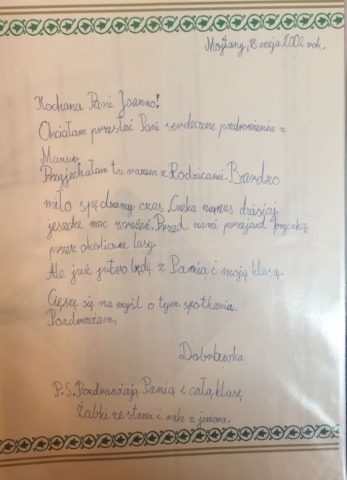 18 maja 2002 rok.
Kochana Pani Joanno!
Chciałam przesłać Pani serdeczne pozdrowienia z
Mazur.
Przyjechałam tu razem z Rodzicami. Bardzo
miło spędzamy czas. Czeka na nas dzisiaj
jeszcze moc wrażeń. Przed nami przejazd bryczką
przez okoliczne lasy.
Ale już jutro będę z Panią i moją klasą.
Cieszę się na myśl o tym spotkaniu.
Pozdrawiam,
Dobrbuska
P.S. Pozdrawiają Panią i całą klasę
Żabki ze stawu i raki z jeziora.